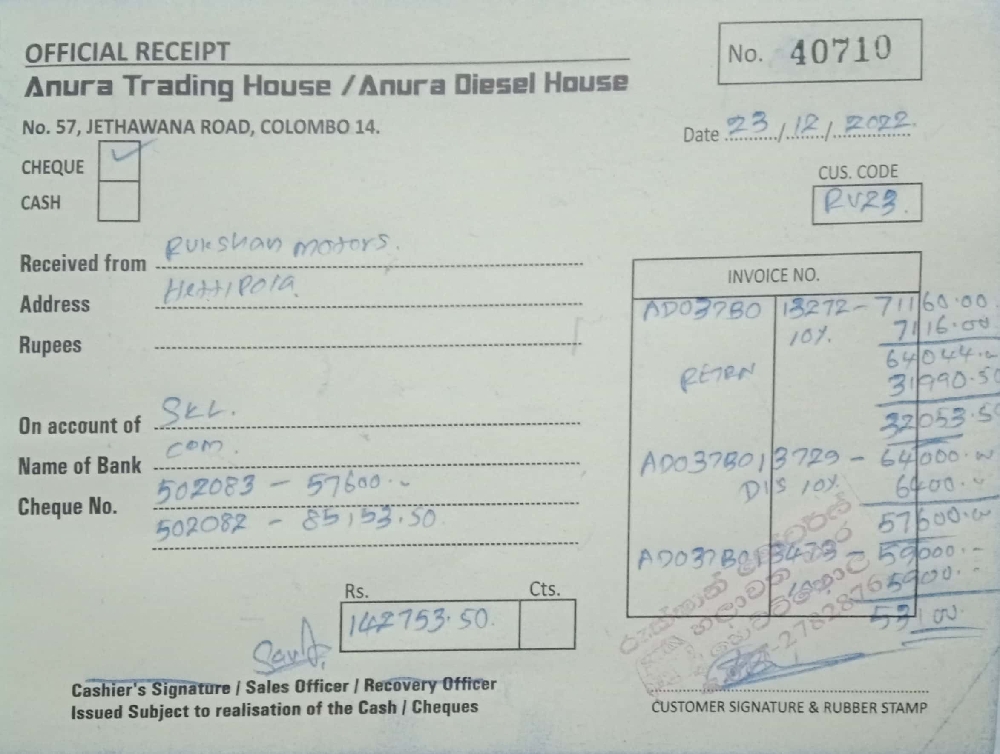 OFFICIAL RECEIPT
Anura Trading House / Anura Diesel House
No. 57, JETHAWANA ROAD, COLOMBO 14.
No. 40710
Date 23/12/2022
CHEQUE ✓
CASH
CUS. CODE
RV23
Received from Rukshan motors.
Address Hettipola
Rupees
On account of SKL.
Name of Bank com.
Cheque No. 502083 - 57600.-
502082 - 85,153.50
INVOICE NO.
AD037B0 13272 - 71160.00
10% 7116.00
64044.00
RETRN 31990.50
32053.50
AD037B013729 - 64000.00
DIS 10% 6400.-
57600.00
AD037B013473 - 59000.-
5900.-
53100
Rs. Cts.
142753.50
Cashier's Signature / Sales Officer / Recovery Officer
Issued Subject to realisation of the Cash / Cheques
CUSTOMER SIGNATURE & RUBBER STAMP